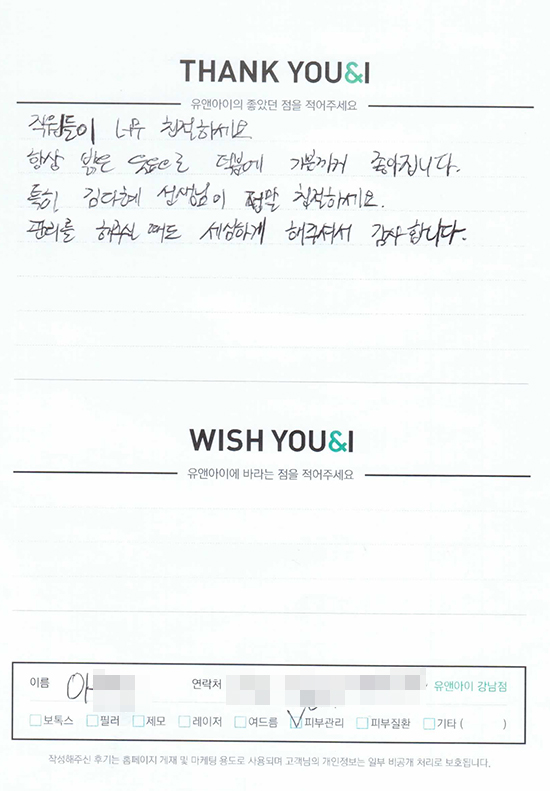 THANK YOU&I
유앤아이의 좋았던 점을 적어주세요
직원들이 너무 친절하세요
항상 밝은 웃음으로 덕분에 기분까지 좋아집니다.
특히 김다혜 선생님이 정말 친절하세요.
관리를 해주실 때도 세심하게 해주셔서 감사합니다.
WISH YOU&I
유앤아이에 바라는 점을 적어주세요
이름 연락처 유앤아이 강남점
보톡스 필러 제모 레이저 여드름 피부관리 피부질환 기타 ( )
작성해주신 후기는 홈페이지 게재 및 마케팅 용도로 사용되며 고객님의 개인정보는 일부 비공개 처리로 보호됩니다.